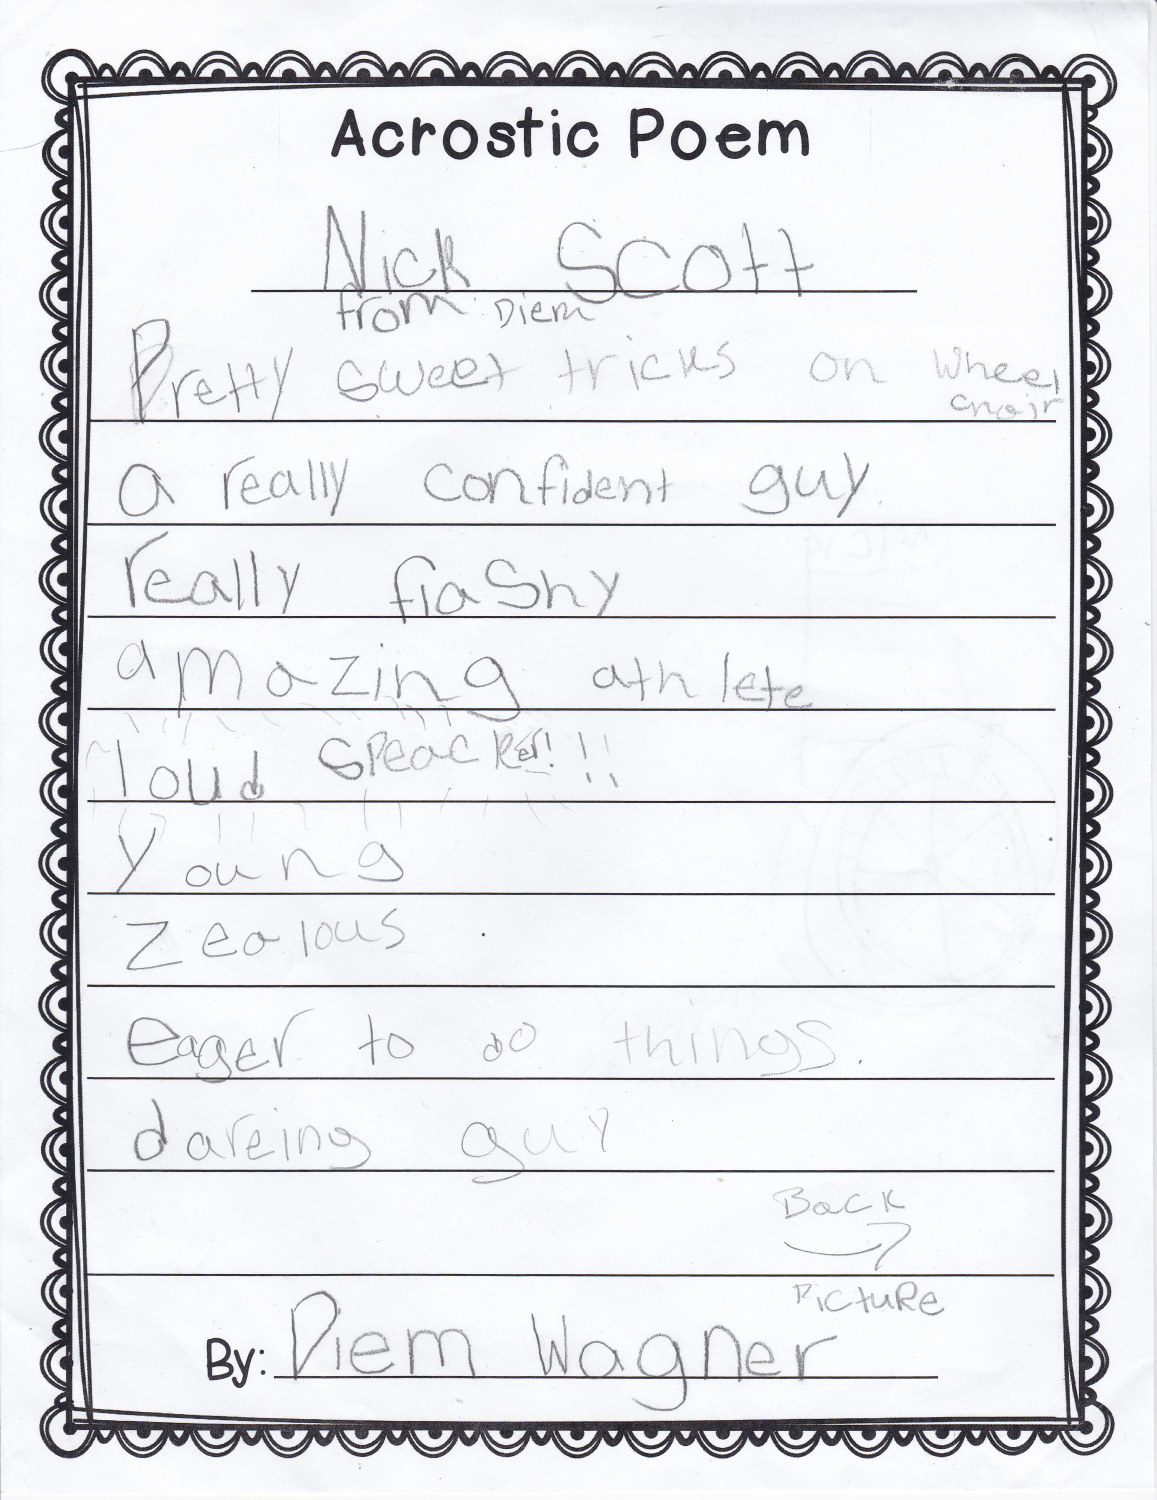 Acrostic Poem
Nick Scott
from Diem
Pretty sweet tricks on wheel
chair
a really confident guy.
really flashy
amazing athlete
loud speacker!!!
Young
Zealous
eager to do things.
dareing guy
Back
Picture
By: Diem Wagner